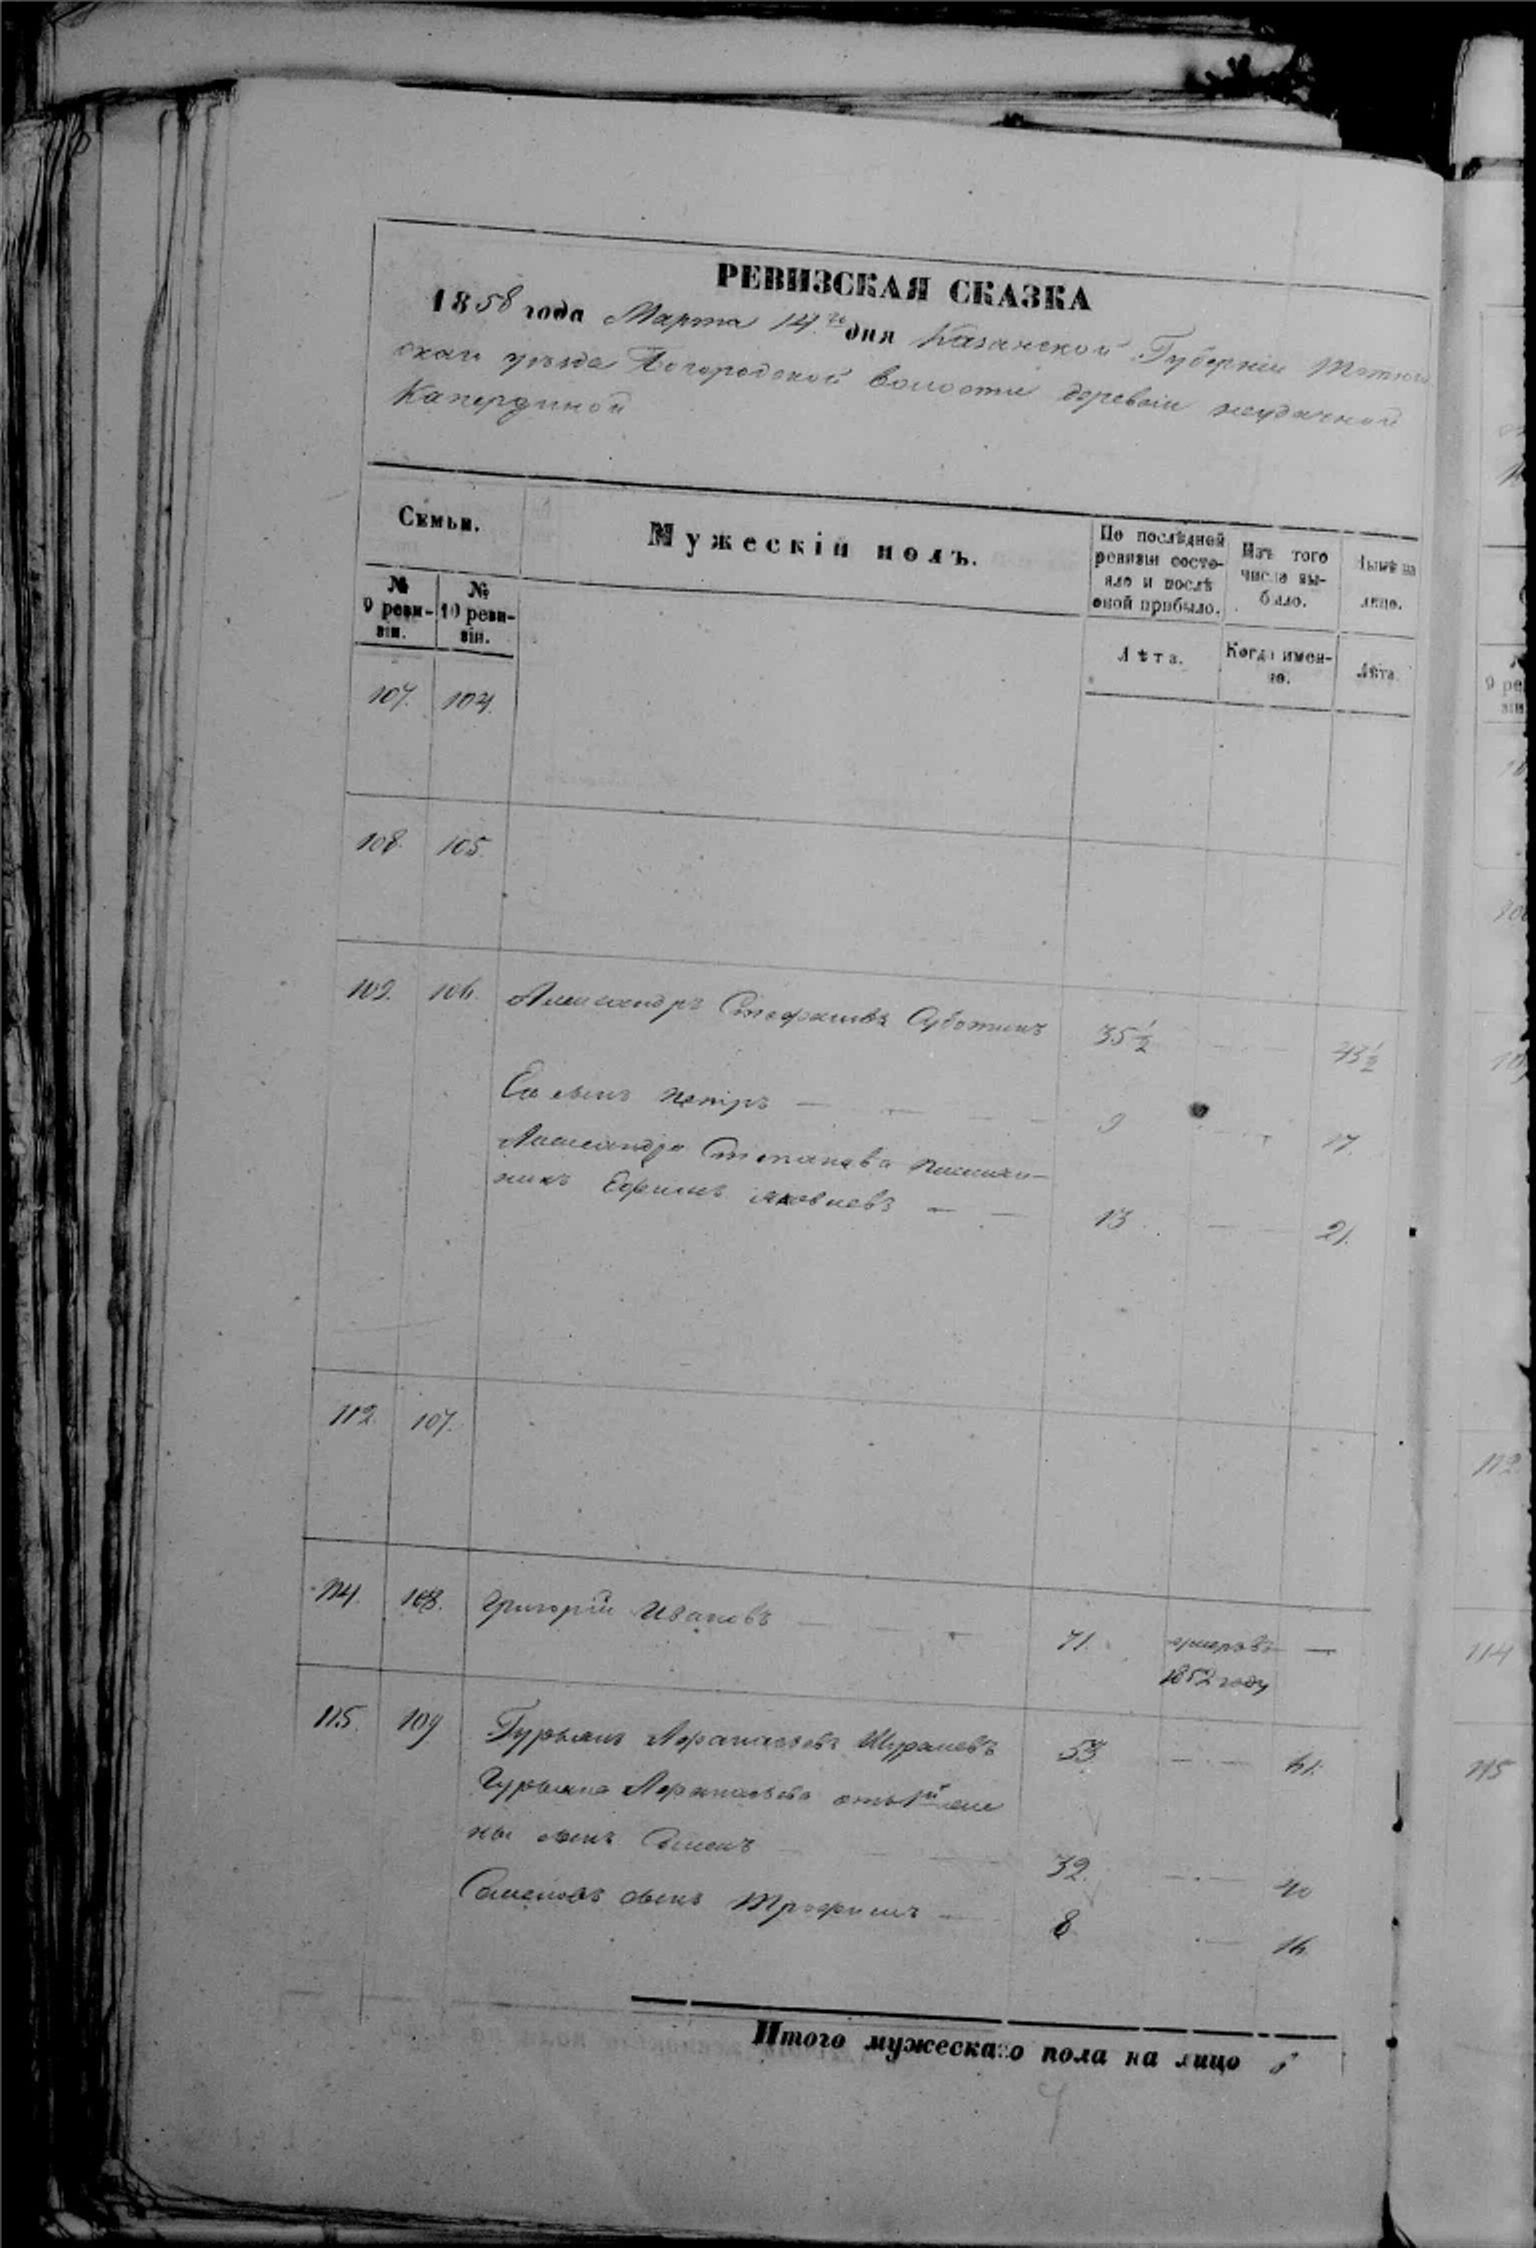 РЕВИЗСКАЯ СКАЗКА
1858 года Марта 14го дня Казанской Губерніи Тетюш
скаго уѣзда Богородской волости деревни неудачной
Капердиной
Семьи.
Мужескій полъ.
По послѣдней ревизіи состояло и послѣ оной прибыло.
Изъ того числа выбыло.
Нынѣ на лицо.
№ 9 ревизіи.
№ 10 ревизіи.
Лѣта.
Когда именно.
Лѣта.
107. 104.
108. 105.
109. 106. Александръ Стефановъ Суботинъ 35½ 43½
Его сынъ Петръ 9 17.
Александра Степанова племян-
никъ Ефимъ Яковлевъ 13 21.
112. 107.
114. 108. Григорій Ивановъ 71. умеръ въ —
1852 году
115. 109 Гурьянъ Афанасьевъ 53 61.
Гурьяна Афанасьева отъ 1й же
ны сынъ Семенъ 32. 40
Семеновъ сынъ Трофимъ 8 16
Итого мужескаго пола на лицо 6